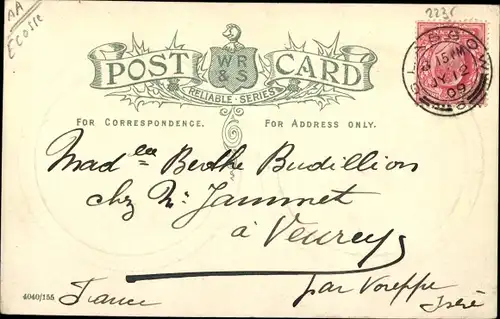 AA
Ecosse
223c
POST CARD
WR & S
RELIABLE SERIES
FOR CORRESPONDENCE.
FOR ADDRESS ONLY.
GLASGOW
15 PM
12
09
Madlle Berthe Budillion
chez Mr Jammet
à Veurey
par Voreppe
France
Isère
4040/155